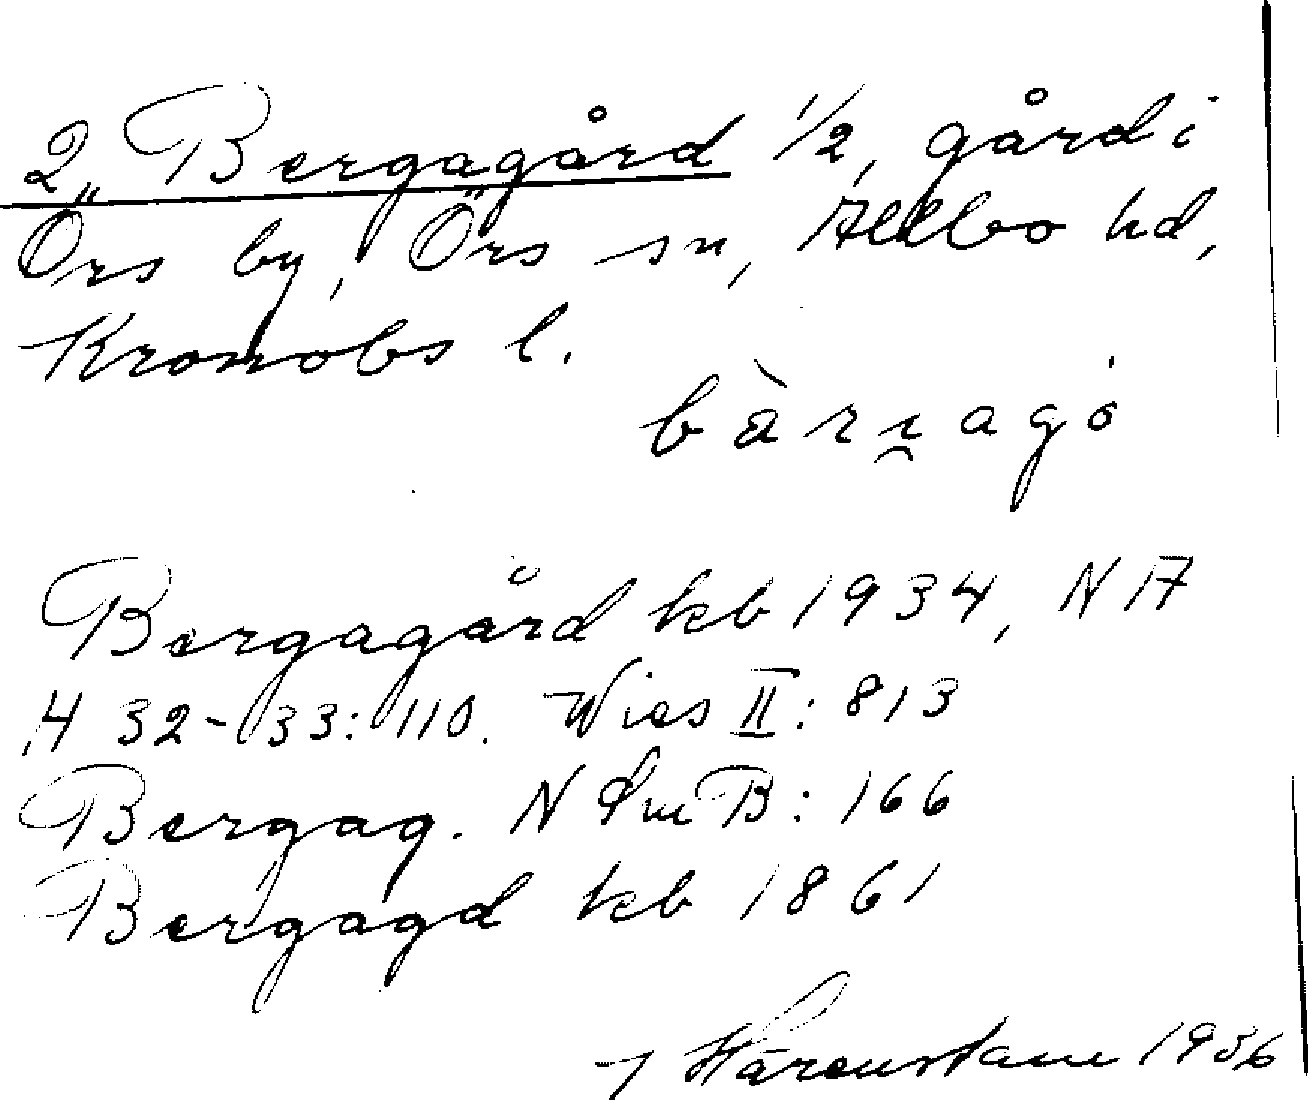 2, Bergagård 1/2, gård i
Örs by, Örs sn, Allbo hd,
Kronobs l.
bàrɪ̯agó
Bergagård kb 1934, NA
H 32-33: 110. Wies II: 813
Bergag. N Sm B: 166
Bergagd kb 1861
1936